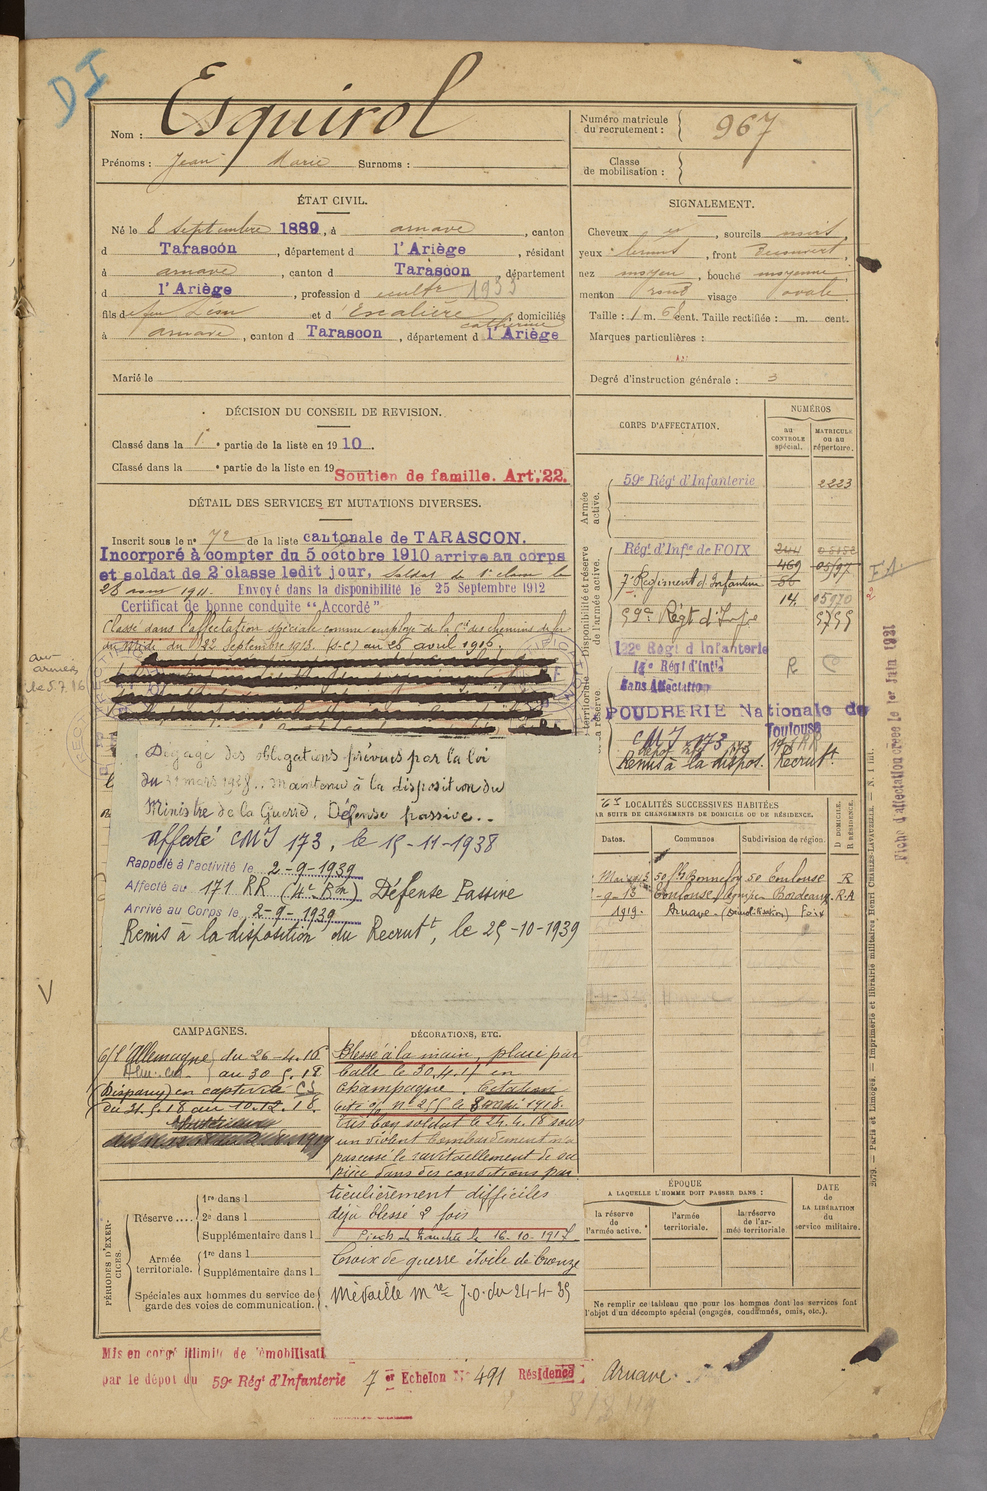 DI
Nom : Esquirol
Prénoms : Jean Marie Surnoms :
Numéro matricule du recrutement : 967
Classe de mobilisation :
ÉTAT CIVIL.
Né le 8 septembre 1889, à arnave, canton
d Tarascon, département d l'Ariège, résidant
à arnave, canton d Tarascon, département
d l'Ariège, profession d cultr 1933
fils de feu Léon et d Escalière Catherine, domiciliés
à arnave, canton d Tarascon, département d l'Ariège
Marié le
SIGNALEMENT.
Cheveux et, sourcils noirs,
yeux bruns, front Découvert,
nez moyen, bouche moyenne
menton rond visage ovale
Taille : 1 m. 61 cent. Taille rectifiée : m. cent.
Marques particulières :
Degré d'instruction générale : 3
DÉCISION DU CONSEIL DE REVISION.
Classé dans la 1e partie de la liste en 1910.
Classé dans la e partie de la liste en 19
Soutien de famille. Art. 22.
DÉTAIL DES SERVICES ET MUTATIONS DIVERSES.
Inscrit sous le n° 72 de la liste cantonale de TARASCON.
Incorporé à compter du 5 octobre 1910 arrive au corps
et soldat de 2e classe ledit jour, Soldat de 1e classe le
23 1911. Envoyé dans la disponibilité le 25 Septembre 1912
Certificat de bonne conduite "Accordé"
Classé dans l'affectation spéciale comme employé de la Cie des chemins de fer
du Midi du 22 Septembre 1913. (S-C) au 26 avril 1916.
aux armées le 5.7.16
Dégagé des obligations prévues par la loi
du 31 mars 1928.. maintenu à la disposition du
Ministre de la Guerre. Défense passive..
affecté CMI 173, le 15-11-1938
Rappelé à l'activité le 2-9-1939
Affecté au 171 RR (4e Bon) Défense Passive
Arrivé au Corps le 2-9-1939
Remis à la disposition du Recrutt, le 25-10-1939
CORPS D'AFFECTATION.
NUMÉROS
AU CONTROLE spécial.
MATRICULE ou au répertoire.
Armée active.
59e Régt d'Infanterie 2223
Disponibilité et réserve de l'armée active.
Régt d'Infie de FOIX 244
469 05197
7e Régiment d'Infanterie 56
14 05970
59e Régt d'Infie 5755
122e Régt d'Infanterie R C
14e Régt d'Intie
Sans Affectation
POUDRERIE Nationale de Toulouse
CMI 173
Remis à la dispos. Recrutt.
Fiche d'affectation créée le 1er Juin 1931
LOCALITÉS SUCCESSIVES HABITÉES
PAR SUITE DE CHANGEMENTS DE DOMICILE OU DE RÉSIDENCE.
Dates. Communes Subdivision de région. D DOMICILE. R RÉSIDENCE.
50 Bonnefoy 50 Toulouse R
13 Toulouse Bordeaux. R.A
1919. Arnave. Foix
CAMPAGNES.
C/ l'Allemagne du 26-4.16
au 30.5.18
(Disparu) en captivité CS
du 31.5.18 au 10.12.18.
DÉCORATIONS, ETC.
Blessé à la main, plaie par
balle le 30.4.17 en
Champagne. Citation
cité o/ n° 255 le 8 1918.
Très bon soldat le 24.4.18 sous
un violent bombardement n'a
pas cessé le ravitaillement de sa
pièce dans des conditions par
ticulièrement difficiles
déjà blessé 2 fois
Pieds de tranchée le 16-10-1917
Croix de guerre étoile de bronze
Médaille Mre J.O. du 24-4-35
PÉRIODES D'EXERCICES.
Réserve .... 1re dans l
2e dans l
Supplémentaire dans l
Armée territoriale. 1re dans l
Supplémentaire dans l
Spéciales aux hommes du service de garde des voies de communication.
ÉPOQUE
A LAQUELLE L'HOMME DOIT PASSER DANS :
la réserve de l'armée active.
l'armée territoriale.
la réserve de l'armée territoriale.
DATE de LA LIBÉRATION du service militaire.
Ne remplir ce tableau que pour les hommes dont les services font
l'objet d'un décompte spécial (engagés, condamnés, omis, etc.).
2079. — Paris et Limoges. — Imprimerie et librairie militaires Henri CHARLES-LAVAUZELLE. — N. 1 int.
Mis en congé illimité de démobilisati
par le dépôt du 59e Régt d'Infanterie 7 er Echelon N° 491 Résidence Arnave.